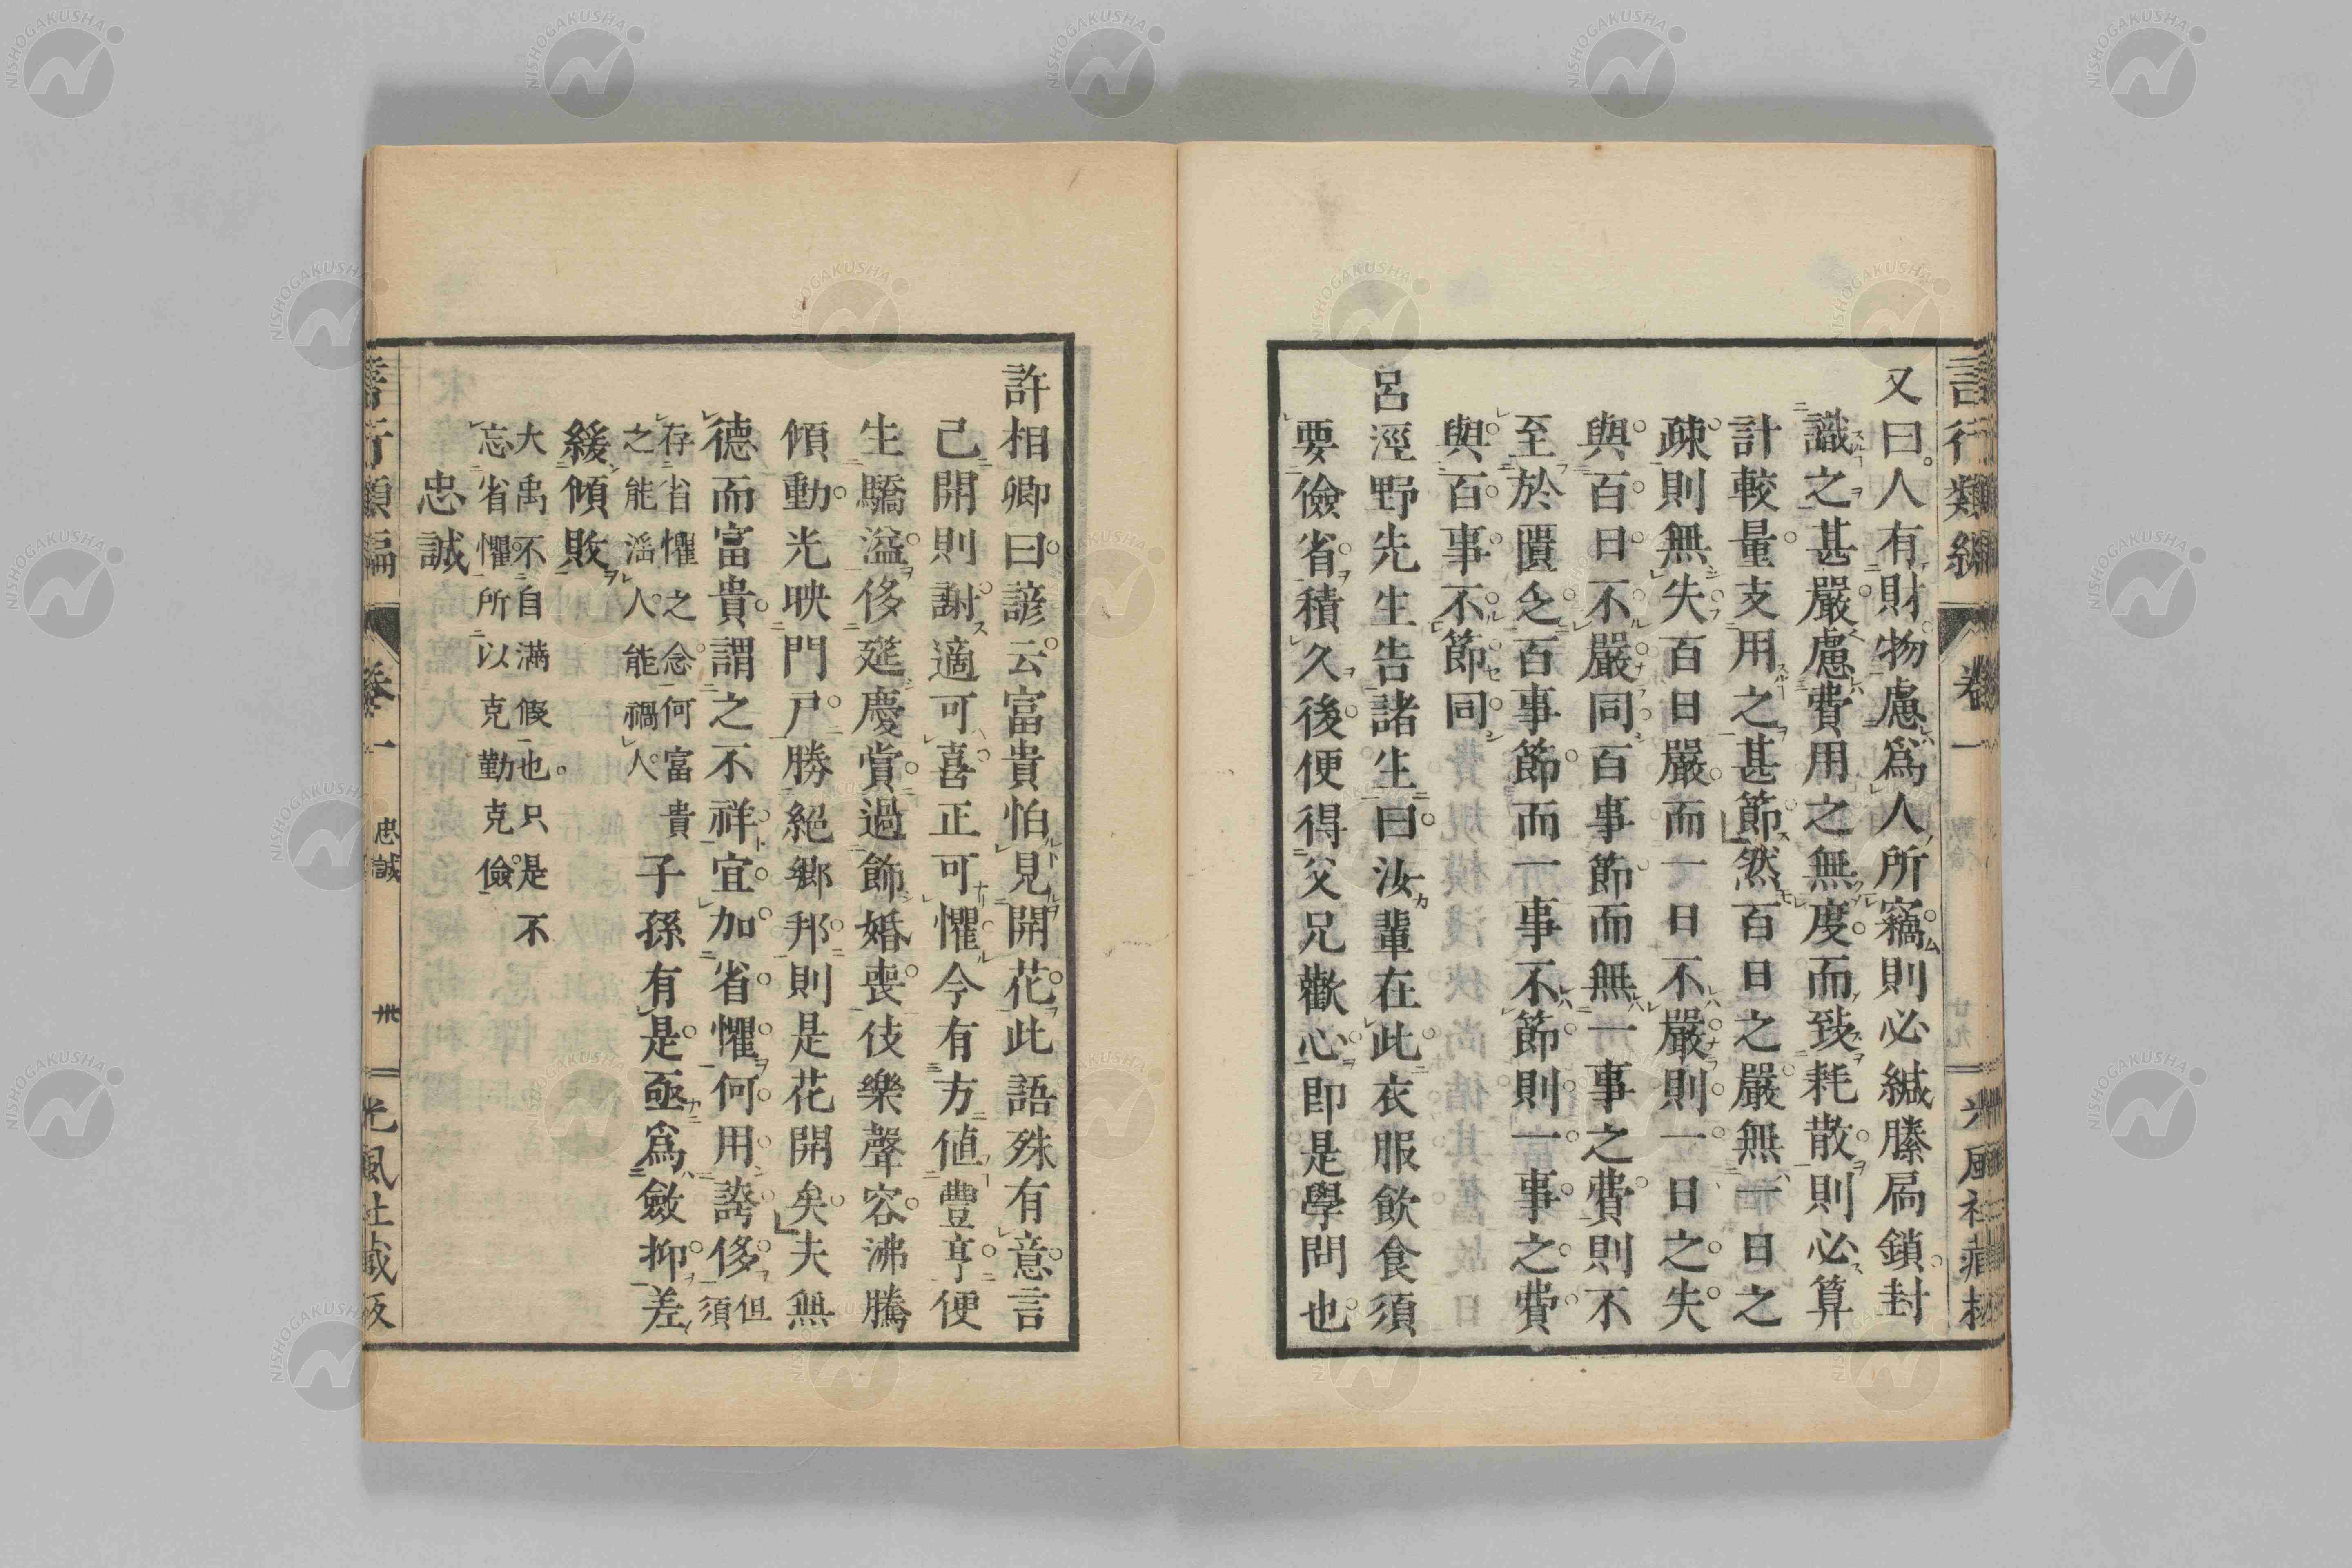 言行類編 卷一 光風社藏板
又曰人有財物慮爲人所竊則必緘縢扃鎖封
識之甚嚴慮費用之無度而致耗散則必算
計較量支用之甚節然百日之嚴無一日之
疎則無失百日嚴而一日不嚴則一日之失
與百日不嚴同百事節而無一事之費則不
至於匱乏百事節而一事不節則一事之費
與百事不節同
呂涇野先生告諸生曰汝輩在此衣服飲食須
要儉省積久後便得父兄歡心卽是學問也
許相卿曰諺云富貴怕見開花此語殊有意言
己開則謝適可喜正可懼今有方値豐亨便
生驕溢侈筵慶賞過飾婚喪伎樂聲容沸騰
傾動光映門戸勝絕鄉邦則是花開矣夫無
德而富貴謂之不祥宜加省懼何用誇侈但須
存省懼之念何富貴
之能滛人能禍人子孫有是亟爲斂抑差
緩傾敗
大禹不自滿假也只是不
忘省懼所以克勤克儉
忠誠
言行類編 卷一 忠誠 卅 光風社藏板
NISHOGAKUSHA